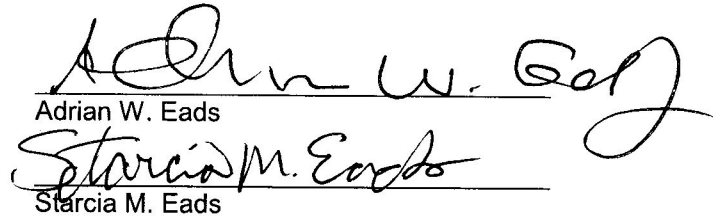 Adrian W. Eads
Adrian W. Eads
Starcia M. Eads
Starcia M. Eads